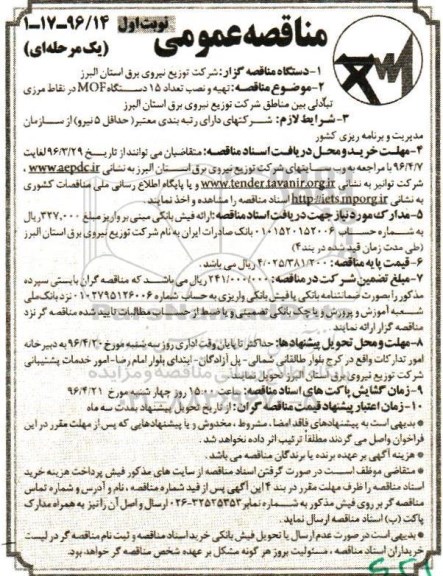 مناقصه عمومی
نوبت اول
۱-۱۷-۹۶/۱۴
(یک مرحله‌ای)
۱-دستگاه مناقصه گزار: شرکت توزیع نیروی برق استان البرز
۲-موضوع مناقصه: تهیه و نصب تعداد ۱۵ دستگاه MOF در نقاط مرزی
تبادلی بین مناطق شرکت توزیع نیروی برق استان البرز
۳-شرایط لازم: شرکتهای دارای رتبه بندی معتبر (حداقل ۵ نیرو) از سازمان
مدیریت و برنامه ریزی کشور
۴-مهلت خرید و محل دریافت اسناد مناقصه: متقاضیان می توانند از تاریخ ۹۶/۳/۲۹ لغایت
۹۶/۴/۷ با مراجعه به وب سایتهای شرکت توزیع نیروی برق استان البرز به نشانی www.aepdc.ir،
شرکت توانیر به نشانی www.tender.tavanir.org.ir و یا پایگاه اطلاع رسانی ملی مناقصات کشوری
به نشانی http://iets.mporg.ir اسناد مناقصه را مشاهده و اخذ نمایند.
۵-مدارک مورد نیاز جهت دریافت اسناد مناقصه: ارائه فیش بانکی مبنی بر واریز مبلغ ۳۲۷,۰۰۰ ریال
به شماره حساب ۰۱۰۱۵۲۰۱۵۲۰۰۶ بانک صادرات ایران به نام شرکت توزیع نیروی برق استان البرز
(طی مدت زمان قید شده در بند ۴)
۶-قیمت پایه مناقصه: ۴/۰۲۵/۳۸۱/۲۰۰ ریال می باشد.
۷-مبلغ تضمین شرکت در مناقصه: ۲۴۱/۰۰۰/۰۰۰ ریال می باشد که مناقصه گران بایستی سپرده
مذکور را بصورت ضمانتنامه بانکی یا فیش بانکی واریزی به حساب شماره ۰۱۰۲۷۹۵۱۲۶۰۰۶ نزد بانک ملی
شعبه آموزش و پرورش و یا چک بانکی تضمینی و یا ضبط از حساب مطالبات تایید شده مناقصه گر نزد
مناقصه گزار ارائه نمایند
۸-مهلت و محل تحویل پیشنهادها: حداکثر تا پایان وقت اداری روز سه شنبه مورخ ۹۶/۴/۲۰ به دبیرخانه
امور تدارکات واقع در کرج بلوار طالقانی شمالی- پل آزادگان- ابتدای بلوار امام رضا- امور خدمات پشتیبانی
شرکت توزیع نیروی برق استان البرز تحویل نمایند
۹-زمان گشایش پاکت های اسناد مناقصه: ساعت ۱۵:۰۰ روز چهارشنبه مورخ ۹۶/۴/۲۱
۱۰-زمان اعتبار پیشنهاد قیمت مناقصه گران: از تاریخ تحویل پیشنهاد بمدت سه ماه
* بدیهی است به پیشنهادهای فاقد امضاء، مشروط، مخدوش و یا پیشنهادهایی که پس از مهلت مقرر در این
فراخوان واصل می گردند مطلقاً ترتیب اثر داده نخواهد شد.
* هزینه آگهی بر عهده برنده یا برندگان مناقصه می باشد.
* متقاضی موظف است در صورت گرفتن اسناد مناقصه از سایت های مذکور فیش پرداخت هزینه خرید
اسناد مناقصه را ظرف مهلت مقرر در بند ۴ این آگهی پس از قید شماره مناقصه، نام و آدرس و شماره تماس
مناقصه گر بر روی فیش مذکور به شماره نمابر ۳۲۵۲۵۳۵۳-۰۲۶ ارسال و اصل آن را نیز به همراه مدارک
پاکت (ب) اسناد مناقصه ارسال نماید.
* بدیهی است در صورت عدم ارسال یا تحویل فیش بانکی خرید اسناد مناقصه و ثبت نام مناقصه گر در لیست
خریداران اسناد مناقصه، مسئولیت بروز هر گونه مشکل بر عهده شخص مناقصه گر خواهد بود.